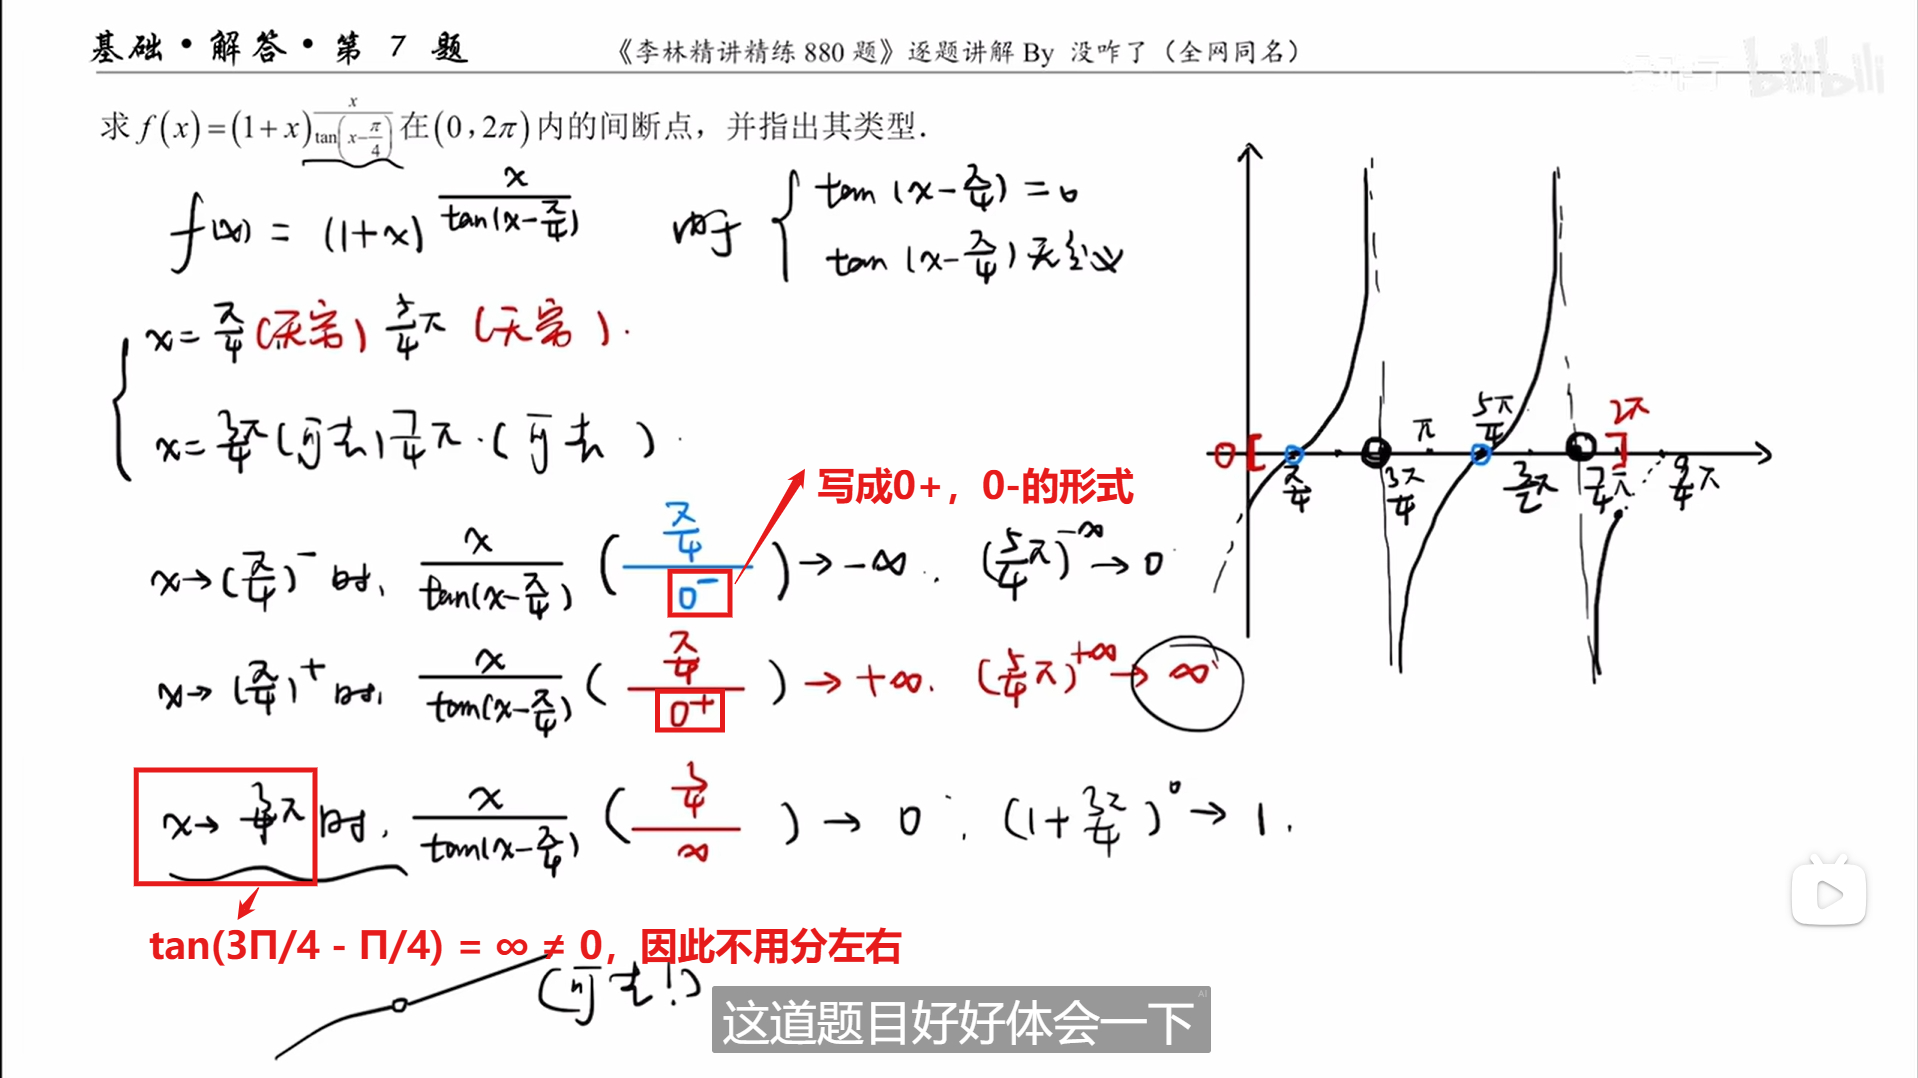 基础·解答·第 7 题
《李林精讲精练 880 题》逐题讲解 By 没咋了（全网同名）
bilibili
求 f(x)=(1+x)^{x/tan(x-π/4)} 在(0,2π)内的间断点，并指出其类型.
f(x) = (1+x)^{x/tan(x-π/4)} 由于 { tan(x-π/4)=0
tan(x-π/4)无定义
x=π/4(无穷) 5/4π (无穷).
x=3π/4(可去) 7/4π.(可去).
写成0+，0-的形式
x→(π/4)⁻时, x/tan(x-π/4) (π/4 / 0⁻) → -∞. (5/4π)^{-∞} → 0
x→(π/4)⁺时, x/tan(x-π/4) (π/4 / 0⁺) → +∞. (5/4π)^{+∞} → ∞
x→ 3/4π时, x/tan(x-π/4) (3/4 / ∞) → 0 ∴ (1+3π/4)^0 → 1.
tan(3Π/4 - Π/4) = ∞ ≠ 0，因此不用分左右
(可去!)
0 [ π/4 3π/4 π 5π/4 3/2π 7/4π ] 2π 9/4π
这道题目好好体会一下
AI